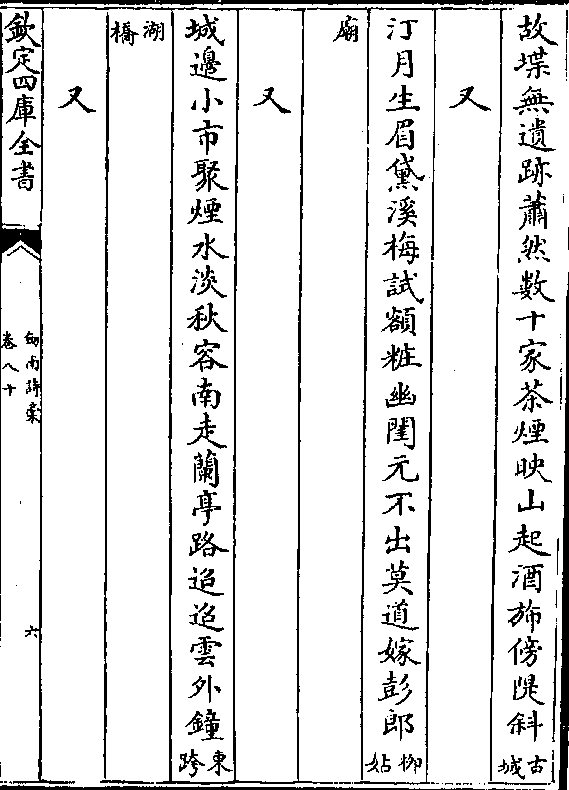 故堞無遺跡蕭然數十家茶煙映山起酒斾傍隄斜古城
又
汀月生眉黛溪梅試額粧幽閨元不出莫道嫁彭郎柳姑
廟
又
城邊小市聚煙水淡秋容南走蘭亭路迢迢雲外鐘東跨
湖橋
又
欽定四庫全書
劍南詩稾
卷八十
六